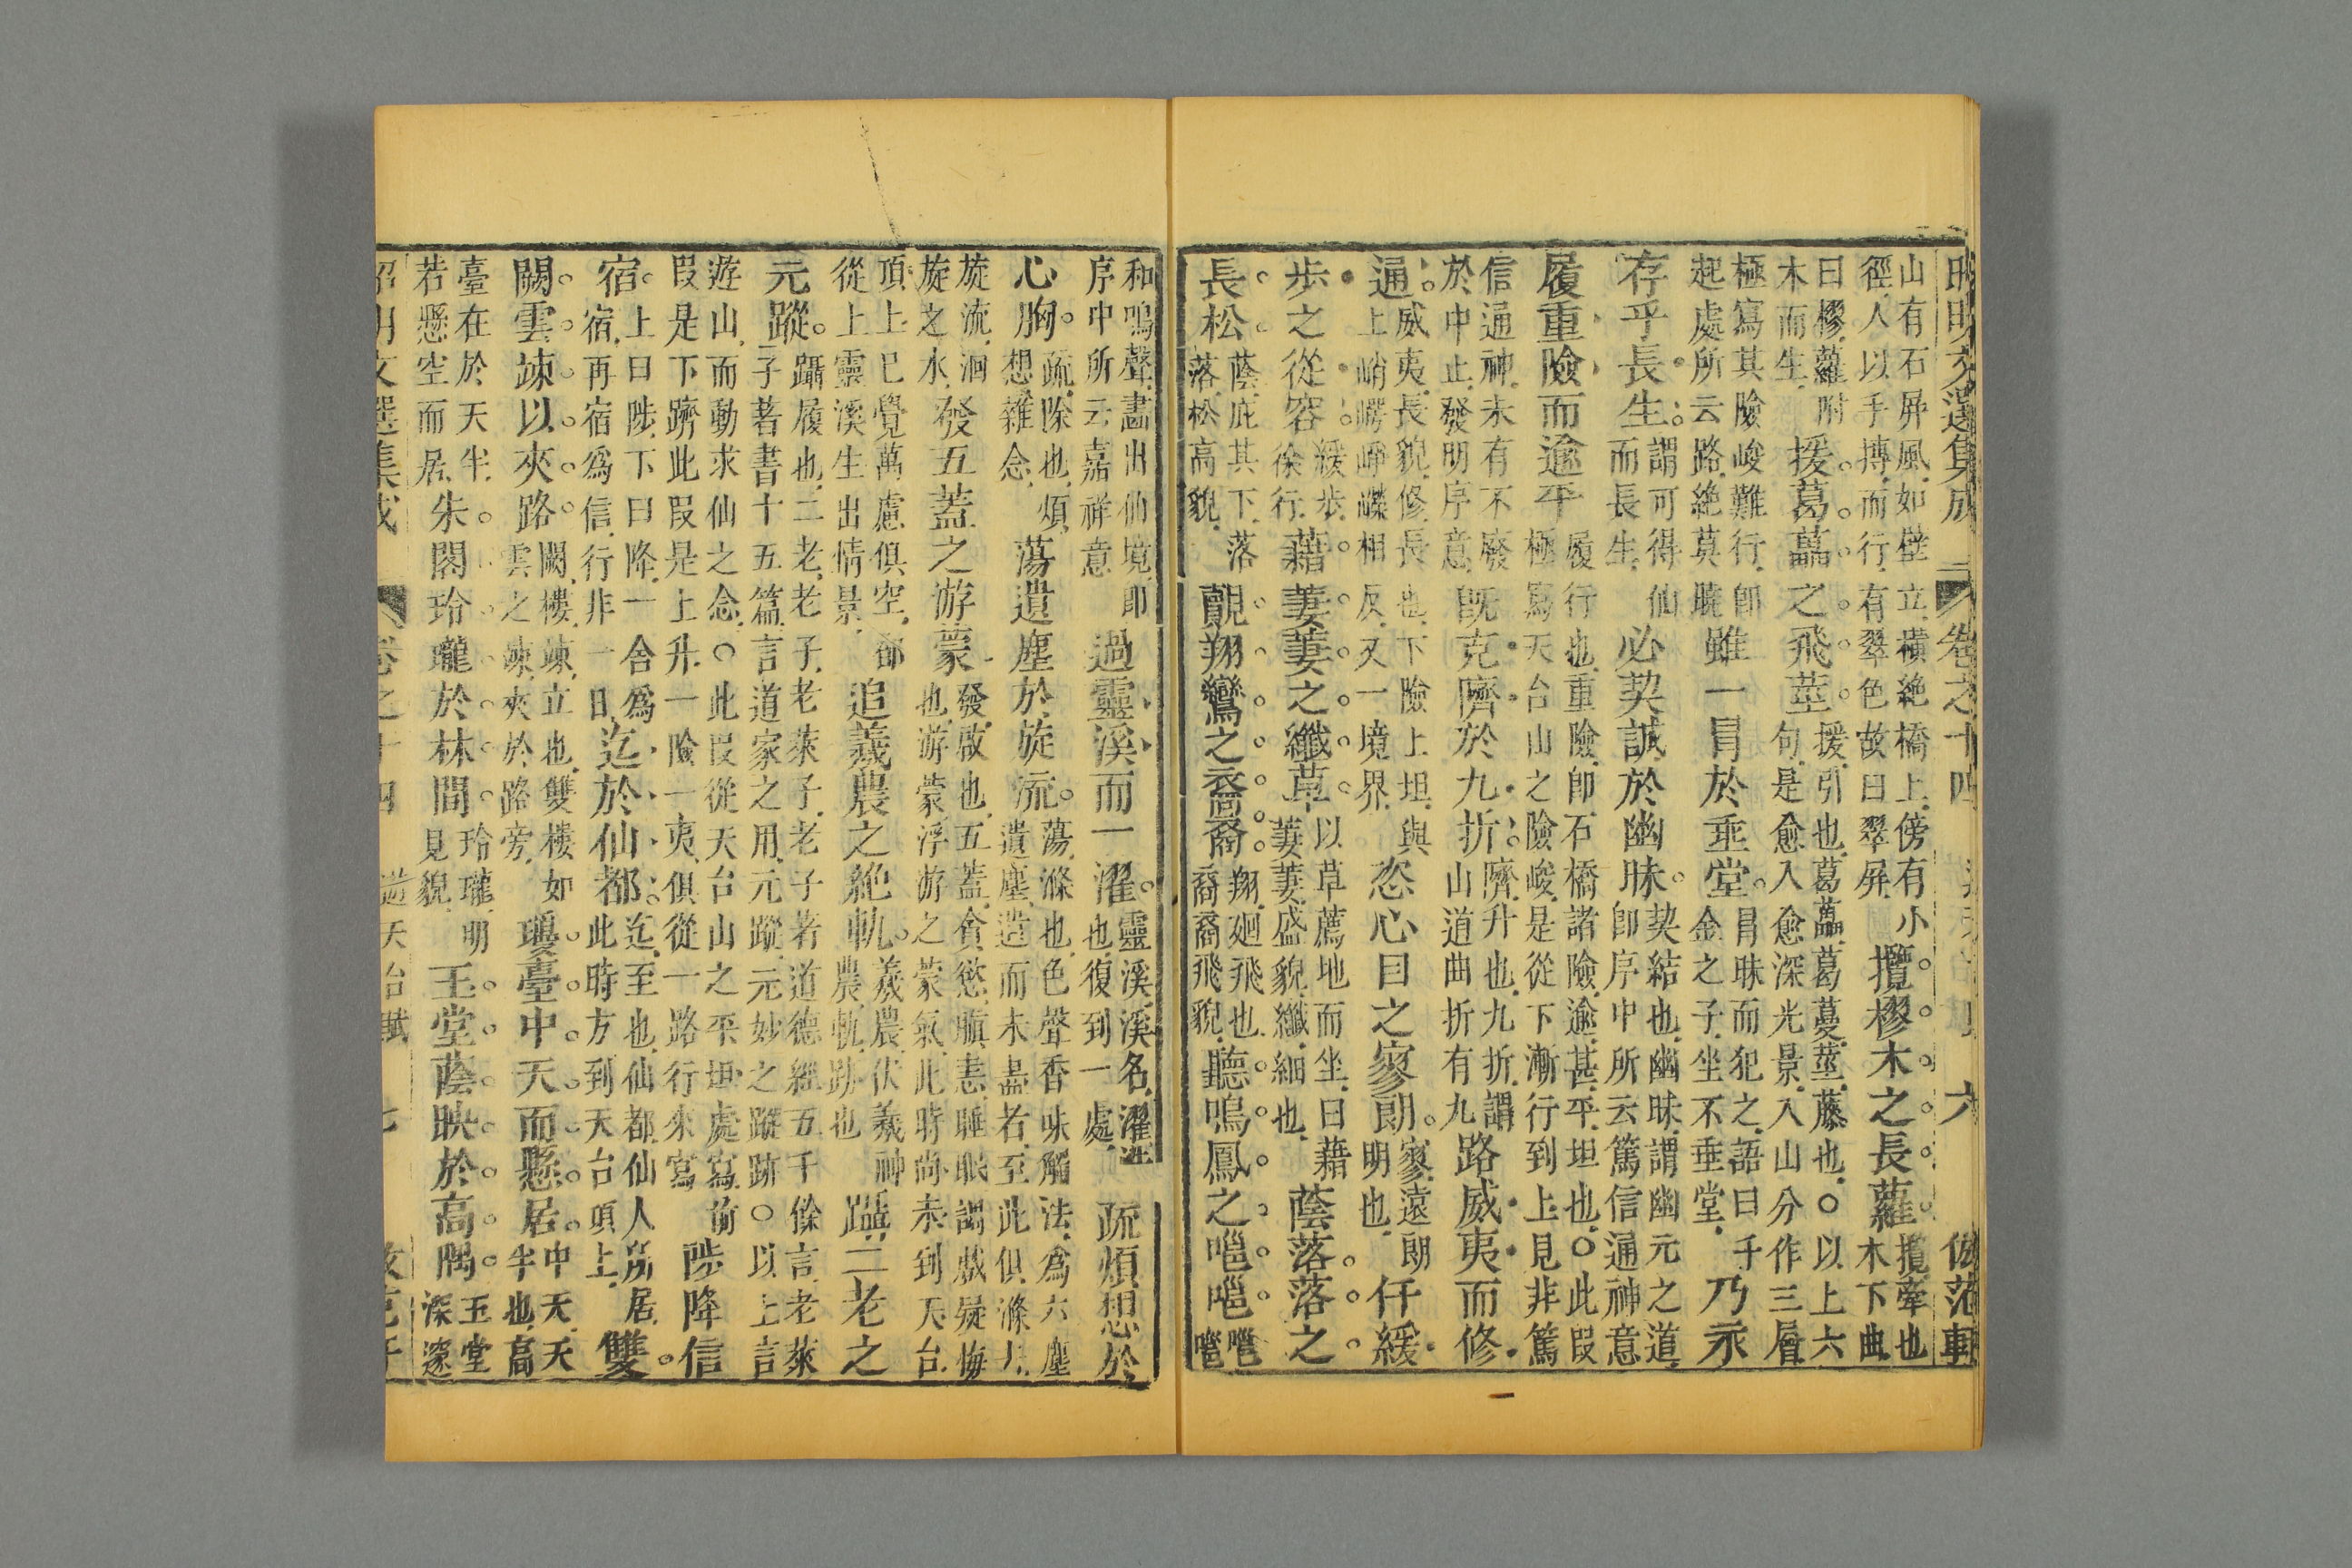 昭明文選集成 卷之十四 六 倣范軒
山有石屏風如壁立橫絶橋上傍有小徑人以手搏而行有翠色故曰翠屏攬樛木之長蘿攬牽也木下曲
曰樛蘿附木而生援葛藟之飛莖援引也葛藟葛蔓莖藤也○以上六句是愈入愈深光景入山分作三層
極寫其險峻難行卽起處所云路絶莫曉雖一冒於垂堂冒昧而犯之語曰千金之子坐不垂堂乃永
存乎長生謂可得仙而長生必契誠於幽昧契結也幽昧謂幽元之道卽序中所云篤信通神意
履重險而逾平履行也重險卽石橋諸險逾甚平坦也○此段極寫天台山之險峻是從下漸行到上見非篤
信通神未有不廢於中止發明序意既克隮於九折隮升也九折謂山道曲折有九路威夷而修
通威夷長貌修長也下險上坦與上峭崿崢嶸相反又一境界恣心目之寥朗寥遠朗明也任緩
步之從容緩步徐行藉萋萋之纖草以草薦地而坐曰藉萋萋盛貌纖細也蔭落落之
長松蔭庇其下落落松高貌覿翔鸞之裔裔翔廻飛也裔裔飛貌聽鳴鳳之嗈嗈嗈嗈
和鳴聲畵出仙境卽序中所云嘉祥意過靈溪而一濯靈溪溪名濯洗也復到一處疏煩想於
心胸疏除也煩想雜念蕩遺塵於旋流蕩滌也色聲香味觸法爲六塵遺塵遺而未盡者至此俱滌去
旋流洄旋之水發五蓋之游蒙發啟也五蓋貪慾瞋恚睡眠調戲疑悔也游蒙浮游之蒙氣此時尚未到天台
頂上已覺萬慮俱空都從上靈溪生出情景追羲農之絶軌羲農伏羲神農軌跡也躡二老之
元蹤躡履也二老老子老萊子老子著道德經五千餘言老萊子著書十五篇言道家之用元蹤元妙之蹤跡○以上言
遊山而動求仙之念○此段從天台山之平坦處寫前段是下躋此段是上升一險一夷俱從一路行來寫陟降信
宿上曰陟下曰降一舍爲宿再宿爲信行非一日迄於仙都迄至也仙都仙人所居此時方到天台頂上雙
闕雲竦以夾路闕樓竦立也雙樓如雲之竦夾於路旁瓊臺中天而懸居中天天半也高
臺在於天半若懸空而居朱閣玲瓏於林間玲瓏明見貌玉堂蔭映於高隅玉堂深邃
昭明文選集成 卷之十四 遊天台賦 七